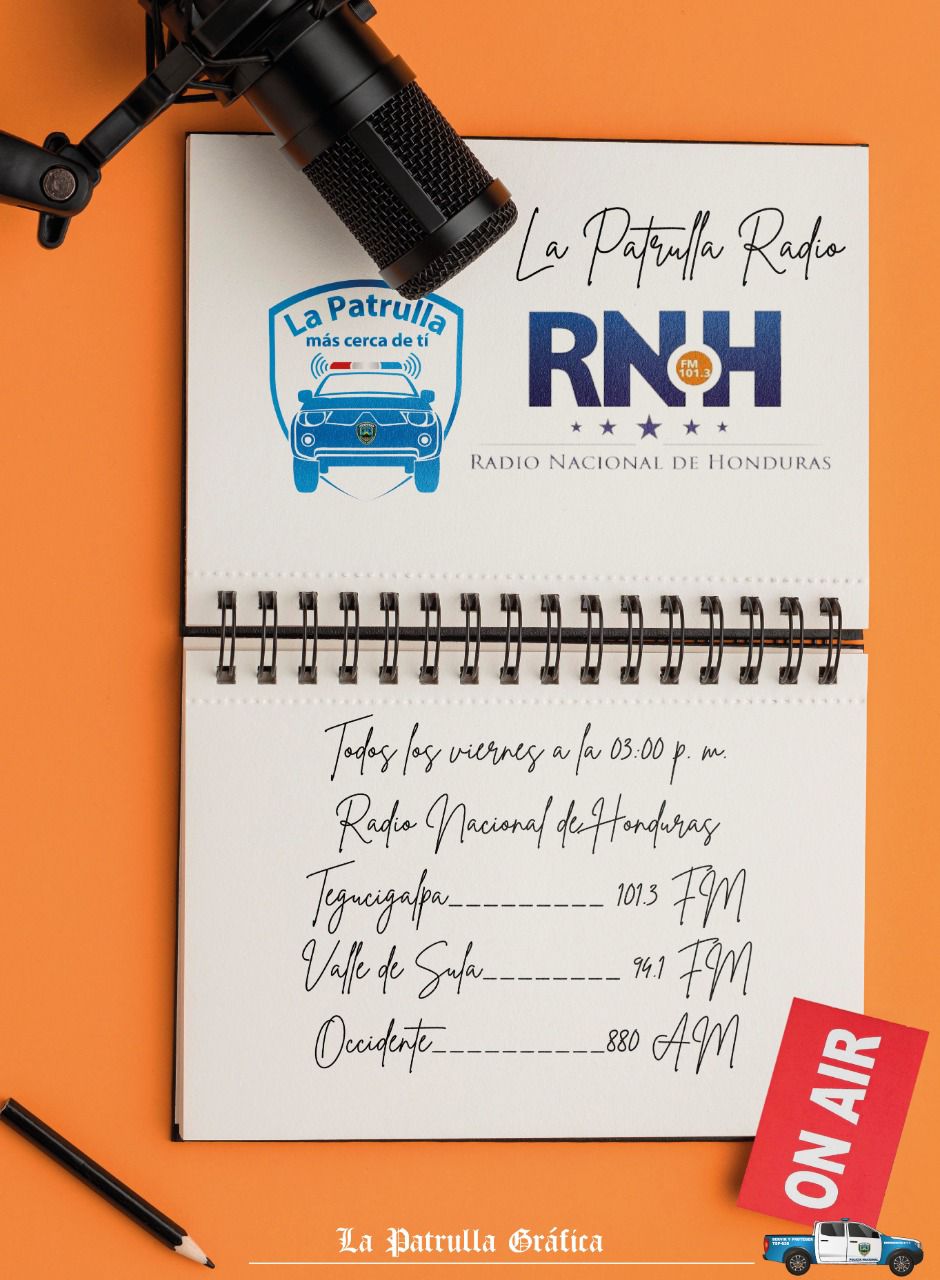 La Patrulla Radio
La Patrulla
más cerca de tí
RNH
FM
101.3
RADIO NACIONAL DE HONDURAS
Todos los viernes a la 03:00 p. m.
Radio Nacional de Honduras
Tegucigalpa_________ 101.3 FM
Valle de Sula________ 94.1 FM
Occidente__________880 AM
ON AIR
La Patrulla Gráfica
SERVIR Y PROTEGER
POLICIA NACIONAL